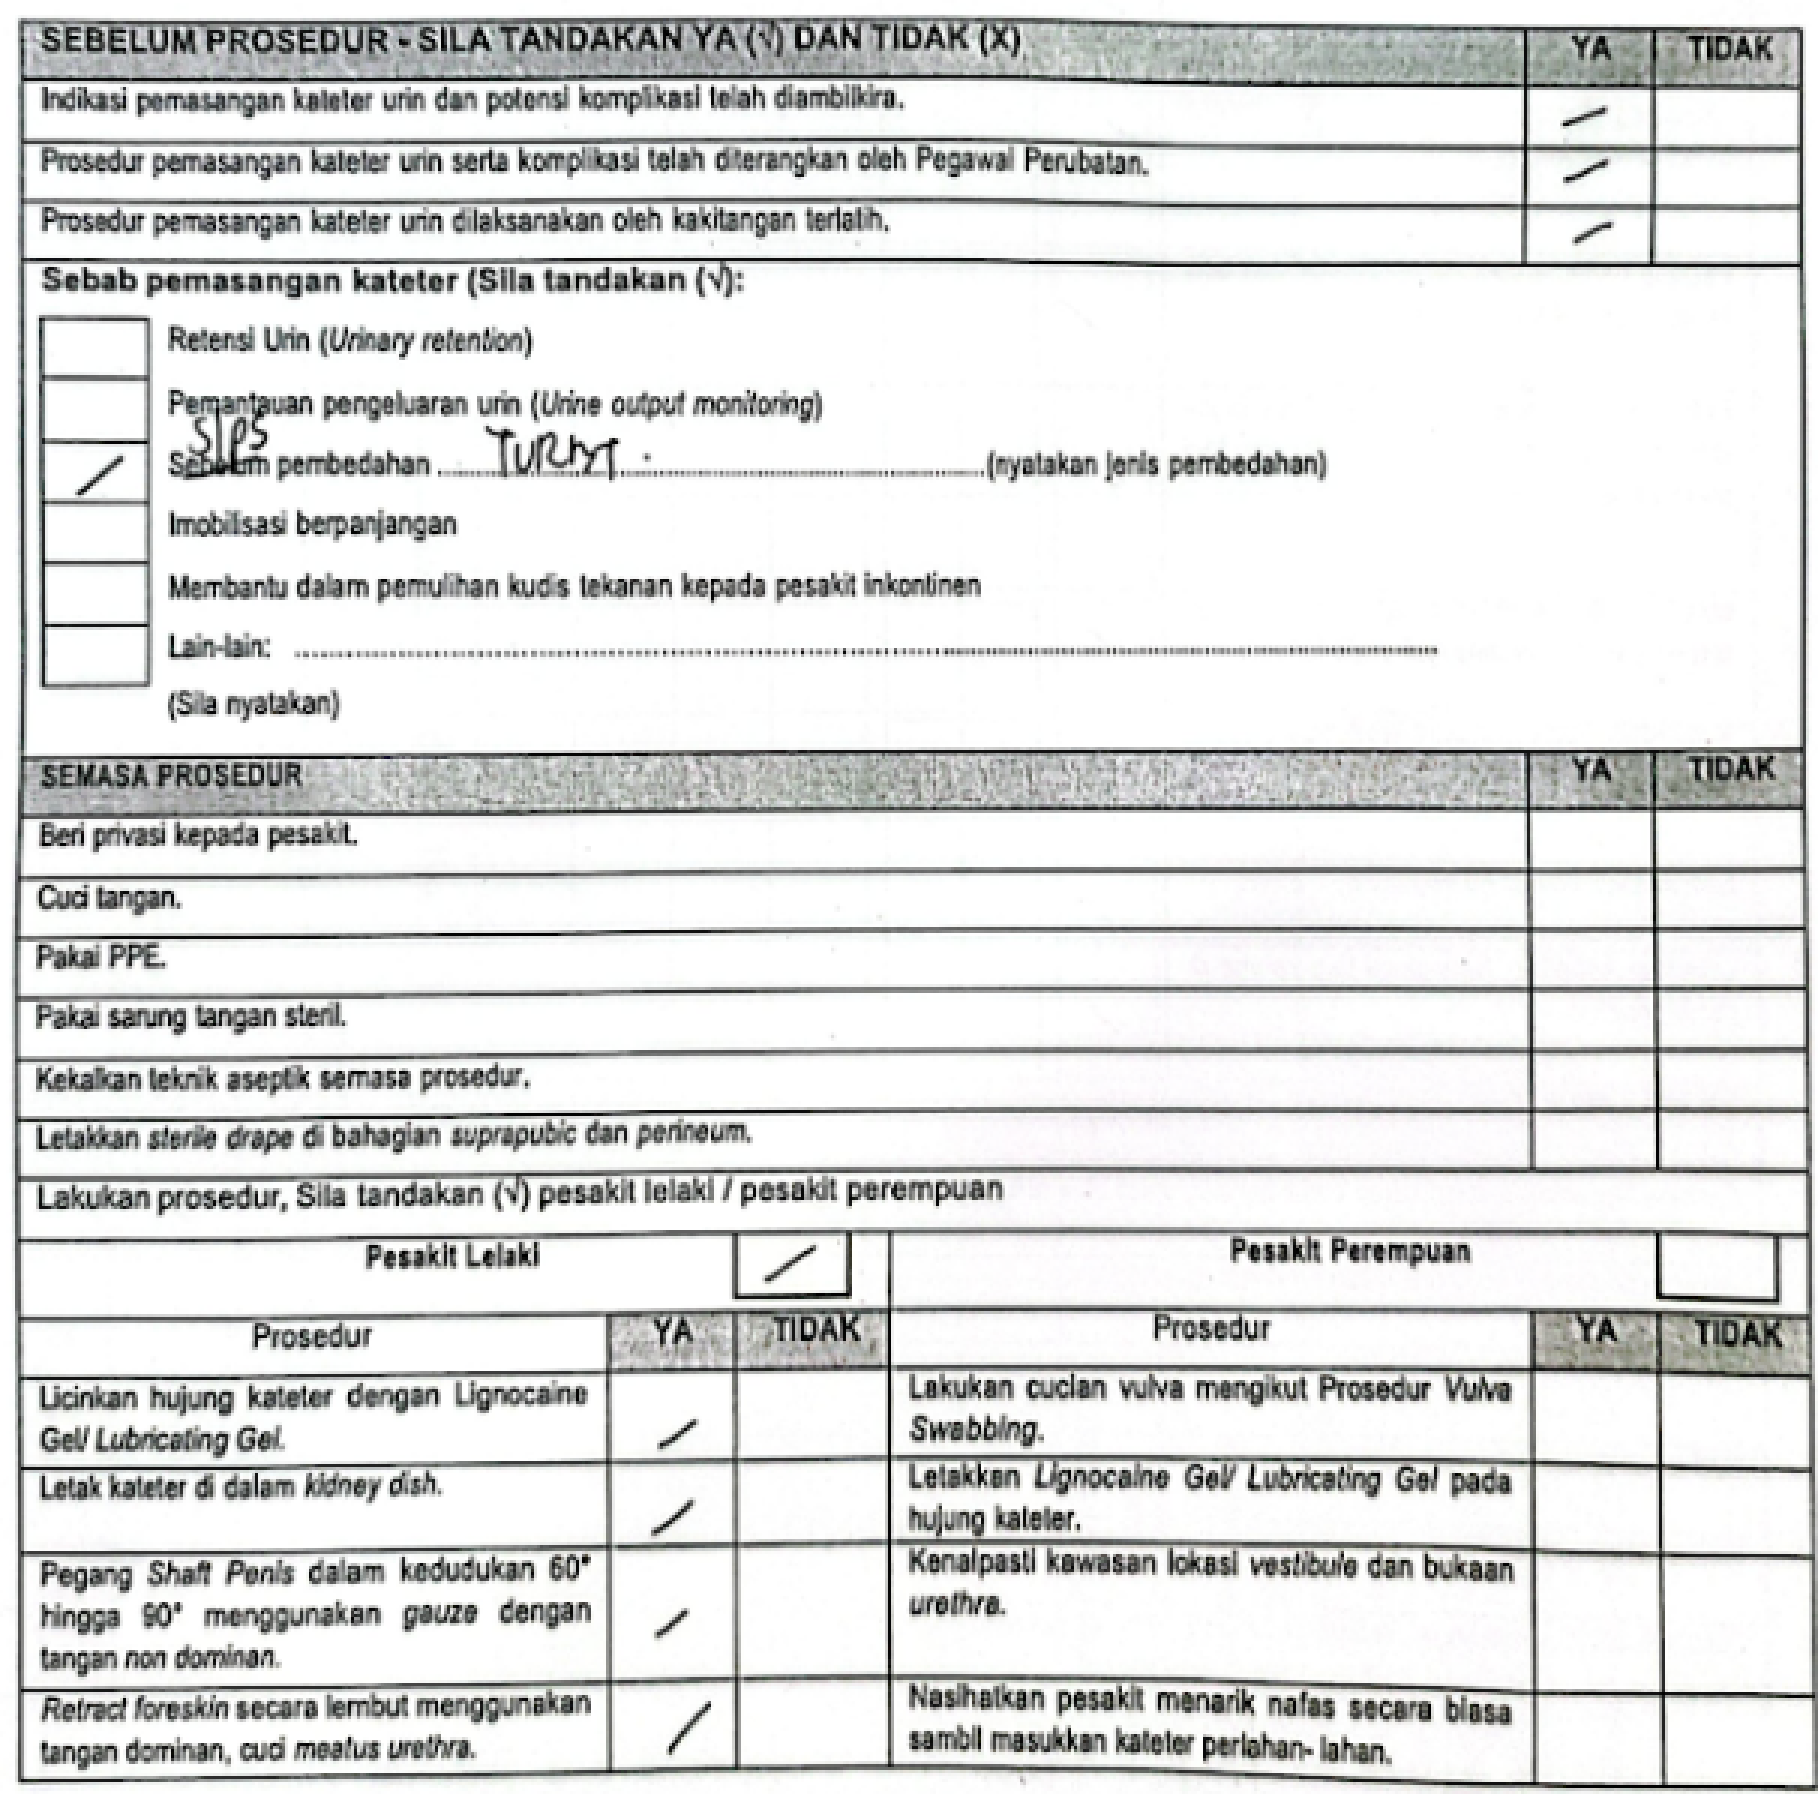 SEBELUM PROSEDUR - SILA TANDAKAN YA (√) DAN TIDAK (X) YA TIDAK
Indikasi pemasangan kateter urin dan potensi komplikasi telah diambilkira. /
Prosedur pemasangan kateter urin serta komplikasi telah diterangkan oleh Pegawai Perubatan. /
Prosedur pemasangan kateter urin dilaksanakan oleh kakitangan terlatih. /
Sebab pemasangan kateter (Sila tandakan (√):
Retensi Urin (Urinary retention)
Pemantauan pengeluaran urin (Urine output monitoring)
S/PS
/ Sebelum pembedahan ........ TURBT ........ (nyatakan jenis pembedahan)
Imobilisasi berpanjangan
Membantu dalam pemulihan kudis tekanan kepada pesakit inkontinen
Lain-lain: ........
(Sila nyatakan)
SEMASA PROSEDUR YA TIDAK
Beri privasi kepada pesakit.
Cuci tangan.
Pakai PPE.
Pakai sarung tangan steril.
Kekalkan teknik aseptik semasa prosedur.
Letakkan sterile drape di bahagian suprapubic dan perineum.
Lakukan prosedur, Sila tandakan (√) pesakit lelaki / pesakit perempuan
Pesakit Lelaki /
Prosedur YA TIDAK
Licinkan hujung kateter dengan Lignocaine
Gel/ Lubricating Gel. /
Letak kateter di dalam kidney dish. /
Pegang Shaft Penis dalam kedudukan 60°
hingga 90° menggunakan gauze dengan
tangan non dominan. /
Retract foreskin secara lembut menggunakan
tangan dominan, cuci meatus urethra. /
Pesakit Perempuan
Prosedur YA TIDAK
Lakukan cucian vulva mengikut Prosedur Vulva
Swabbing.
Letakkan Lignocaine Gel/ Lubricating Gel pada
hujung kateter.
Kenalpasti kawasan lokasi vestibule dan bukaan
urethra.
Nasihatkan pesakit menarik nafas secara biasa
sambil masukkan kateter perlahan- lahan.